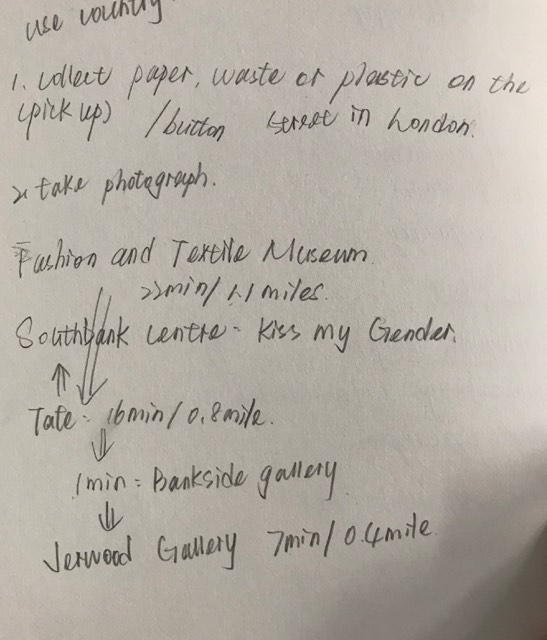 use country
1. collect paper, waste or plastic on the
(pick up) /button street in London.
2. take photograph.
Fashion and Textile Museum
22min/1.1miles.
Southbank centre - Kiss my Gender.
Tate - 16min/0.8mile.
1min = Bankside gallery
Jerwood Gallery 7min/0.4mile